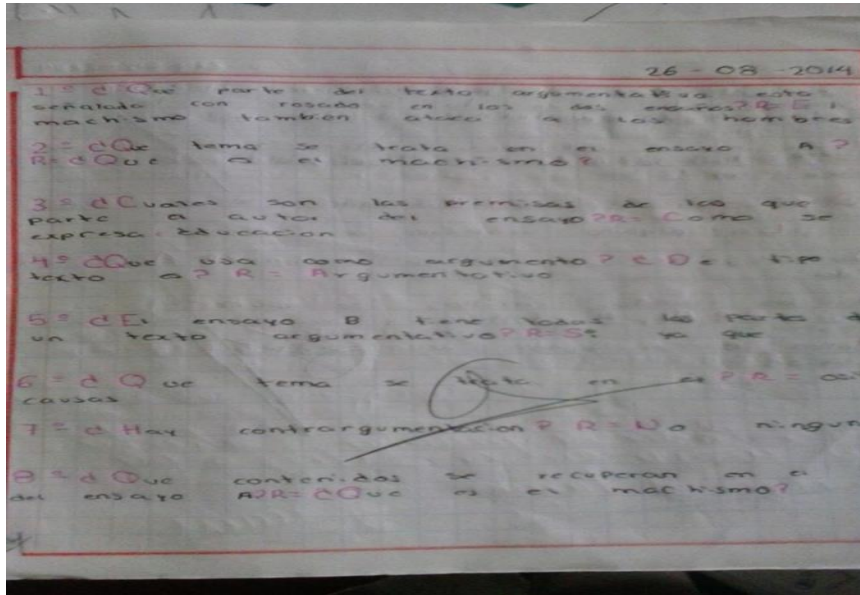 26 - 08 - 2014
1 = ¿Qué parte del texto argumentativo esta
señalada con rosado en los dos ensayos? R = El
machismo tambien ataca a los hombres
2 = ¿Que tema se trata en el ensayo A?
R = ¿Que es el machismo?
3 = ¿Cuales son las premisas de las que
parte el autor del ensayo? R = Como se
expresa Educacion
4 = ¿Que usa como argumento? ¿De tipo
texto es? R = Argumentativo
5 = ¿El ensayo B tiene todas las parte
un texto argumentativo? R = Si ya que
6 = ¿Que tema se trata en el? R =
causas
7 = ¿Hay contrargumentacion? R = No ningun
8 = ¿Que contenidos se recuperan en el
del ensayo A? R = ¿Que es el machismo?